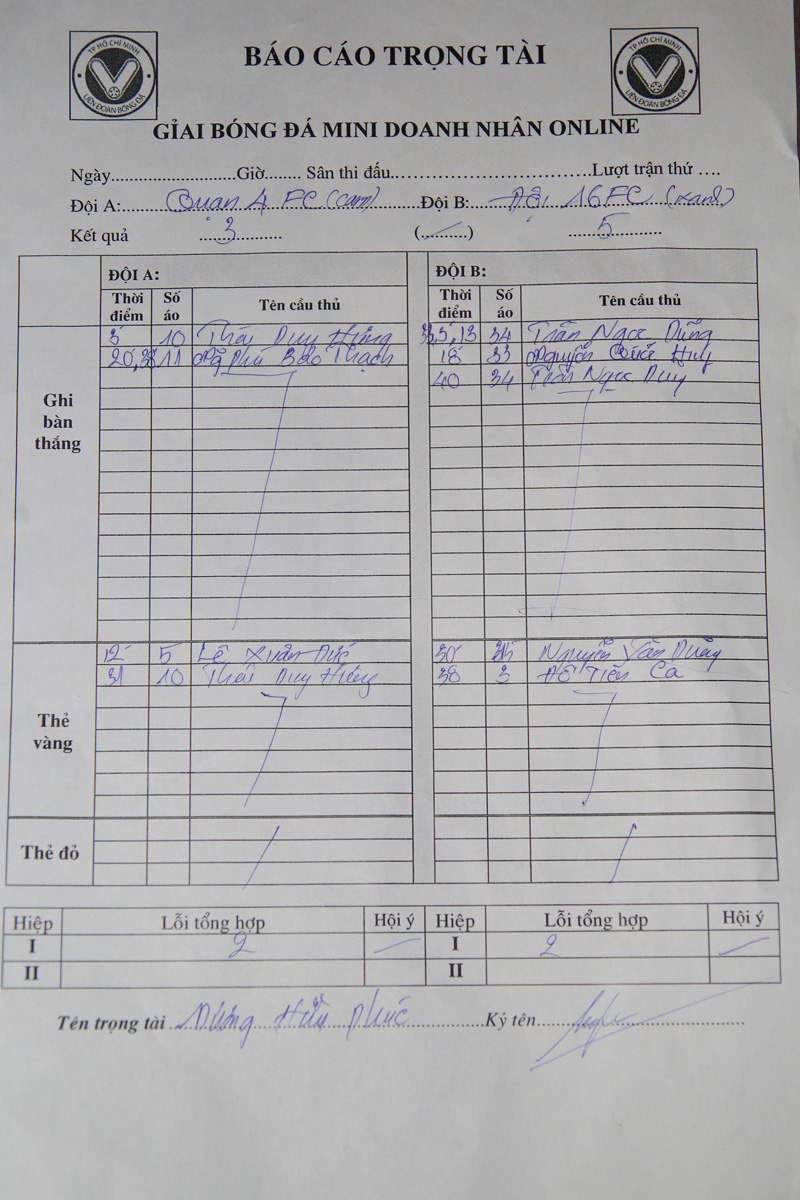 TP HỒ CHÍ MINH
LIÊN ĐOÀN BÓNG ĐÁ
BÁO CÁO TRỌNG TÀI
TP HỒ CHÍ MINH
LIÊN ĐOÀN BÓNG ĐÁ
GIẢI BÓNG ĐÁ MINI DOANH NHÂN ONLINE
Ngày..........................Giờ........ Sân thi đấu......................................Lượt trận thứ ....
Đội A: Quan 4 FC (cam) Đội B: Đội 16 FC (xanh)
Kết quả 3 ( / ) 5
ĐỘI A: ĐỘI B:
Thời điểm Số áo Tên cầu thủ Thời điểm Số áo Tên cầu thủ
Ghi bàn thắng
5 10 Thái Duy Hưng 5, 13 34 Trần Ngọc Dũng
20, 11 Phú Bảo Thạch 18 33 Nguyễn Quốc Huy
40 34 Trần Ngọc Duy
Thẻ vàng
12 5 Lê Xuân Đức 30 Nguyễn Văn Dũng
31 10 Thái Duy Hưng 38 3 Đỗ Tiến Ca
Thẻ đỏ
Hiệp Lỗi tổng hợp Hội ý Hiệp Lỗi tổng hợp Hội ý
I 2 I 2
II II
Tên trọng tài Dương Hữu Phúc Ký tên